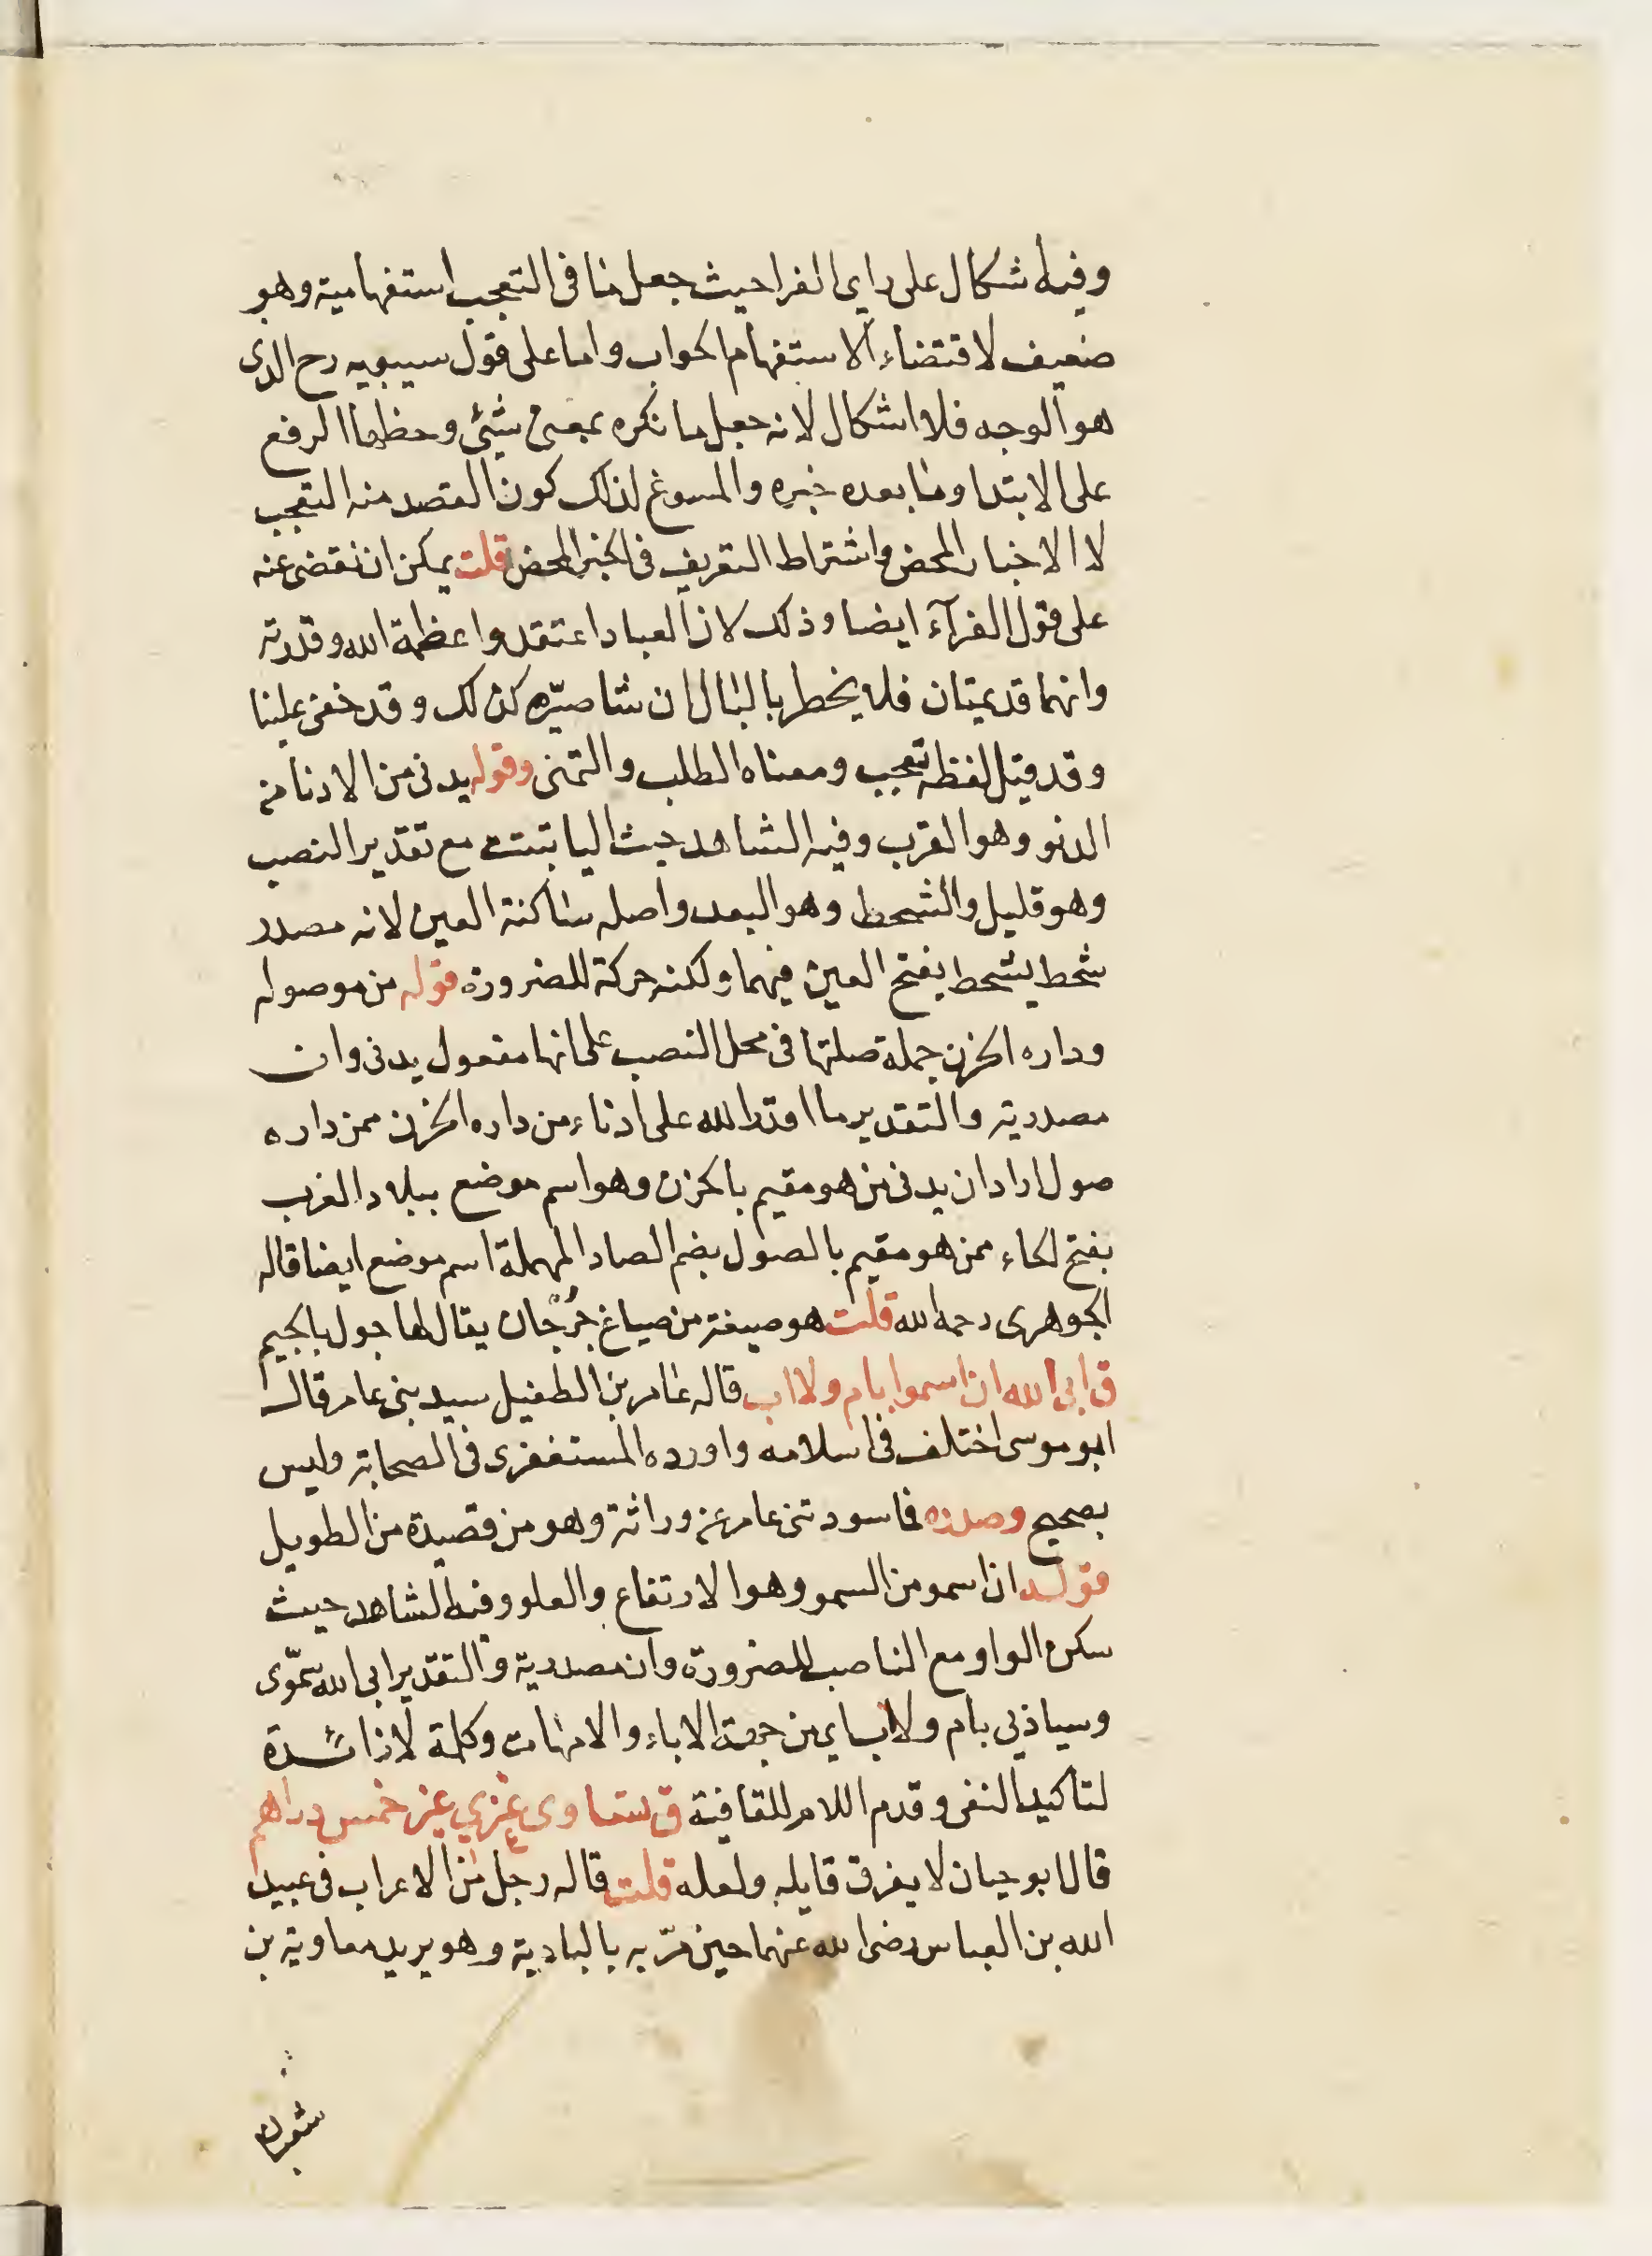 وفيه اشكال على راى الفرا حيث جعل ما فى التعجب استفهامية وهو
ضعيف لاقتضاء الاستفهام الجواب واما على قول سيبويه رح الذى
هو الوجه فلا اشكال لانه جعل ما نكره بمعنى شيئ وحظها الرفع
على الابتدا وما بعده خبره والمسوغ لذلك كون القصد منه التعجب
لا الاخبار المحض واشتراط التعريف فى الخبر المحض قلت يمكن ان نقضى عنه
على قول الفرآء ايضا وذلك لان العباد اعتقدوا عظمة الله وقدرته
وانهما قديمتان فلا يخطر بالبال ان شا صيّره كذلك وقد خفى علينا
وقد قيل لفظه تعجب ومعناه الطلب والتمنى وقوله يدنى من الادنا من
الدنو وهو القرب وفيه الشاهد حيث اليا تبتت مع تقدير النصب
وهو قليل والشحط وهو البعد واصله ساكنة العين لانه مصدر
شحط يشحط بفتح العين فيهما ولكنه حركة للضرورة قوله من موصوله
وداره الحزن جملة صلتها فى محل النصب على انها مفعول يدنى وان
مصدرية والتقدير ما اقدر الله على ادناء من داره الحزن ممن داره
صول اراد ان يدنى من هو مقيم بالحزن وهو اسم موضع ببلاد العرب
بفتح الحاء ممن هو مقيم بالصول بضم الصاد المهملة اسم موضع ايضا قاله
الجوهرى رحمه الله قلت هو صيغة من صياغ جُرجان يقال لها جول بالجيم
ق ابى الله ان اسموا بام ولا اب قاله عامر بن الطفيل سيد بنى عامر قال
ابو موسى اختلف فى اسلامه واورده المستغفرى فى الصحابة وليس
بصحيح وصدره فما سودتنى عامر عن وراثة وهو من قصيدة من الطويل
قوله ان اسمو من السمو وهو الارتفاع والعلو وفيه الشاهد حيث
سكن الواو مع الناصب للضرورة وان مصدرية والتقدير ابى الله سموّى
وسياذيى بام ولا اب اى من جهة الاباء والامهات وكلمة لا زائدة
لتاكيد النفى وقدم اللام للقافية ق ستساوى عنزي غير خمس دراهم
قال ابو حيان لا يعرف قايله ولعله قلت قاله رجل من الاعراب فى عبيد
الله بن العباس رضى الله عنهما حين مرّ به بالبادية وهو يريد معاوية بن